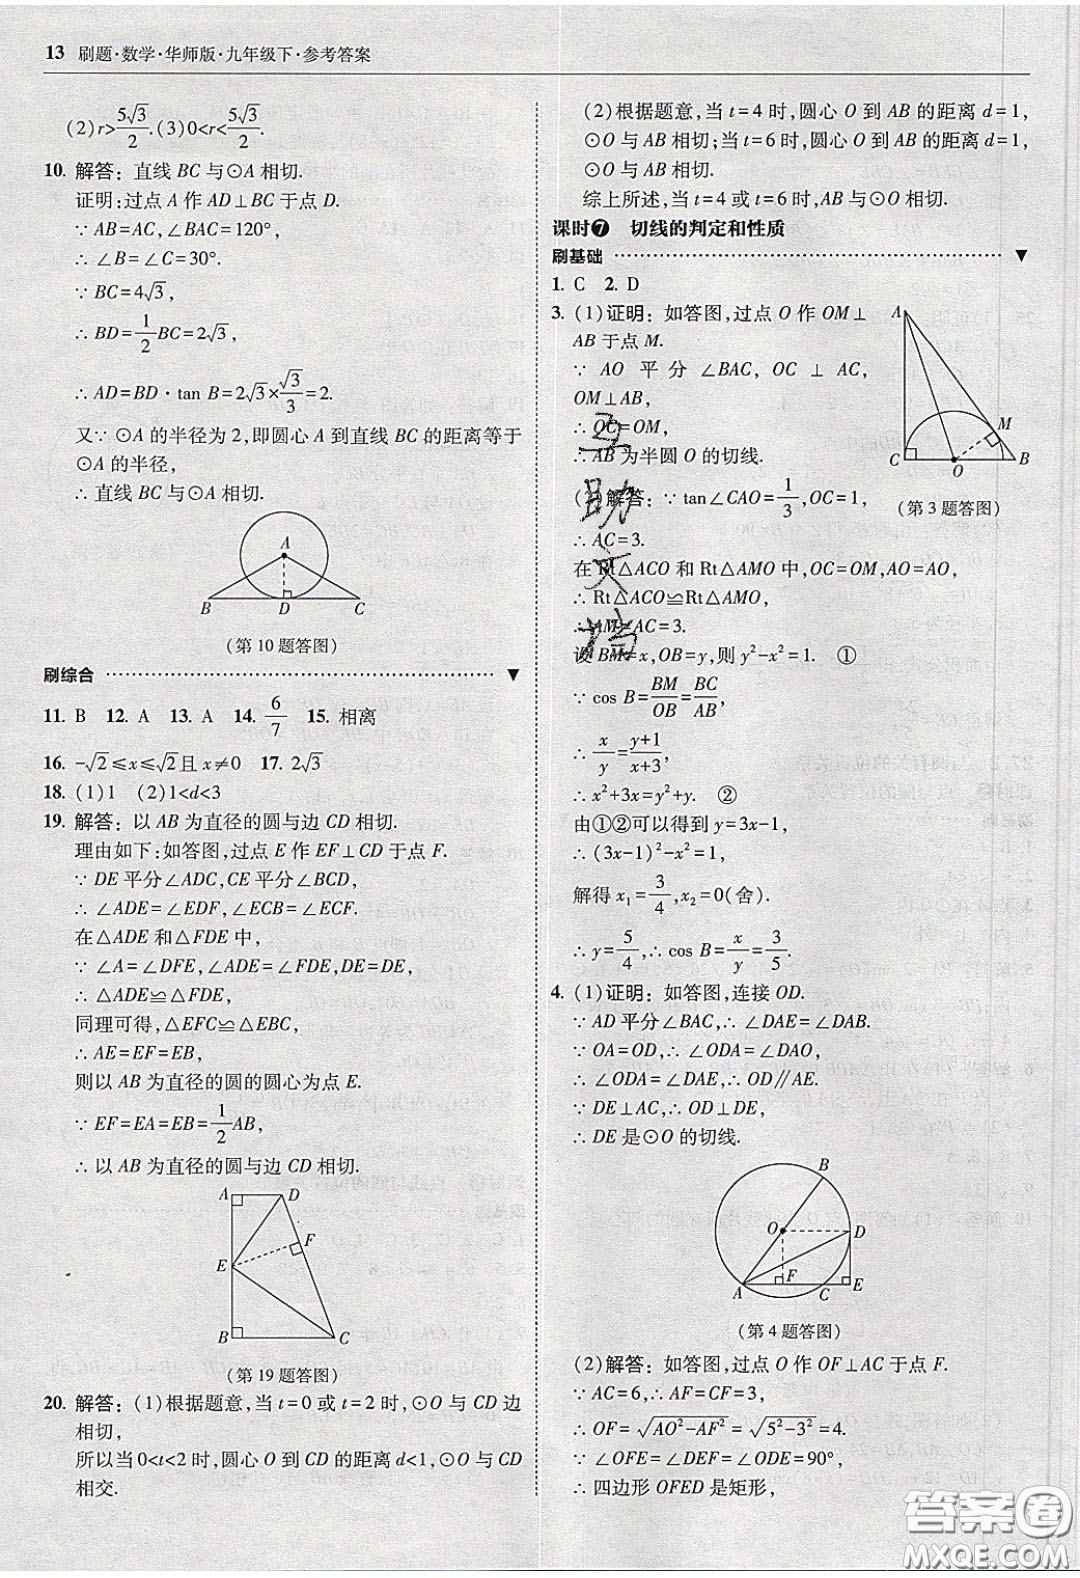 13 刷题·数学·华师版·九年级下·参考答案
(2)r>5√3/2.(3)0<r<5√3/2.
10. 解答：直线 BC 与⊙A 相切.
证明：过点 A 作 AD⊥BC 于点 D.
∵AB=AC,∠BAC=120°,
∴∠B=∠C=30°.
∵BC=4√3,
∴BD=1/2BC=2√3,
∴AD=BD·tan B=2√3×√3/3=2.
又∵⊙A 的半径为 2,即圆心 A 到直线 BC 的距离等于
⊙A 的半径,
∴直线 BC 与⊙A 相切.
A
B D C
(第 10 题答图)
刷综合
11. B 12. A 13. A 14. 6/7 15. 相离
16. -√2≤x≤√2且 x≠0 17. 2√3
18. (1)1 (2)1<d<3
19. 解答：以 AB 为直径的圆与边 CD 相切.
理由如下:如答图,过点 E 作 EF⊥CD 于点 F.
∵DE 平分∠ADC,CE 平分∠BCD,
∴∠ADE=∠EDF,∠ECB=∠ECF.
在△ADE 和△FDE 中,
∵∠A=∠DFE,∠ADE=∠FDE,DE=DE,
∴△ADE≌△FDE,
同理可得,△EFC≌△EBC,
∴AE=EF=EB,
则以 AB 为直径的圆的圆心为点 E.
∵EF=EA=EB=1/2AB,
∴以 AB 为直径的圆与边 CD 相切.
A D
F
E
B C
(第 19 题答图)
20. 解答：(1)根据题意,当 t=0 或 t=2 时,⊙O 与 CD 边
相切,
所以当 0<t<2 时,圆心 O 到 CD 的距离 d<1,⊙O 与 CD
相交.
(2)根据题意,当 t=4 时,圆心 O 到 AB 的距离 d=1,
⊙O 与 AB 相切;当 t=6 时,圆心 O 到 AB 的距离 d=1,
⊙O 与 AB 相切.
综上所述,当 t=4 或 t=6 时,AB 与⊙O 相切.
课时❼ 切线的判定和性质
刷基础
1. C 2. D
3. (1)证明：如答图,过点 O 作 OM⊥
AB 于点 M.
∵AO 平分∠BAC, OC⊥AC,
OM⊥AB,
∴OC=OM,
∴AB 为半圆 O 的切线.
(2)解答：∵tan∠CAO=1/3,OC=1,
∴AC=3.
在 Rt△ACO 和 Rt△AMO 中,OC=OM,AO=AO,
∴Rt△ACO≌Rt△AMO,
∴AM=AC=3.
设 BM=x,OB=y,则 y²-x²=1. ①
∵cos B=BM/OB=BC/AB,
∴x/y=y+1/x+3,
∴x²+3x=y²+y. ②
由①②可以得到 y=3x-1,
∴(3x-1)²-x²=1,
解得 x₁=3/4,x₂=0(舍).
∴y=5/4,∴cos B=x/y=3/5.
A
M
C O B
(第 3 题答图)
4. (1)证明：如答图,连接 OD.
∵AD 平分∠BAC,∴∠DAE=∠DAB.
∵OA=OD,∴∠ODA=∠DAO,
∴∠ODA=∠DAE,∴OD∥AE.
∵DE⊥AC,∴OD⊥DE,
∴DE 是⊙O 的切线.
B
O D
A F C E
(第 4 题答图)
(2)解答：如答图,过点 O 作 OF⊥AC 于点 F.
∵AC=6,∴AF=CF=3,
∴OF=√AO²-AF²=√5²-3²=4.
∵∠OFE=∠DEF=∠ODE=90°,
∴四边形 OFED 是矩形,
答案圈
MXQE.COM